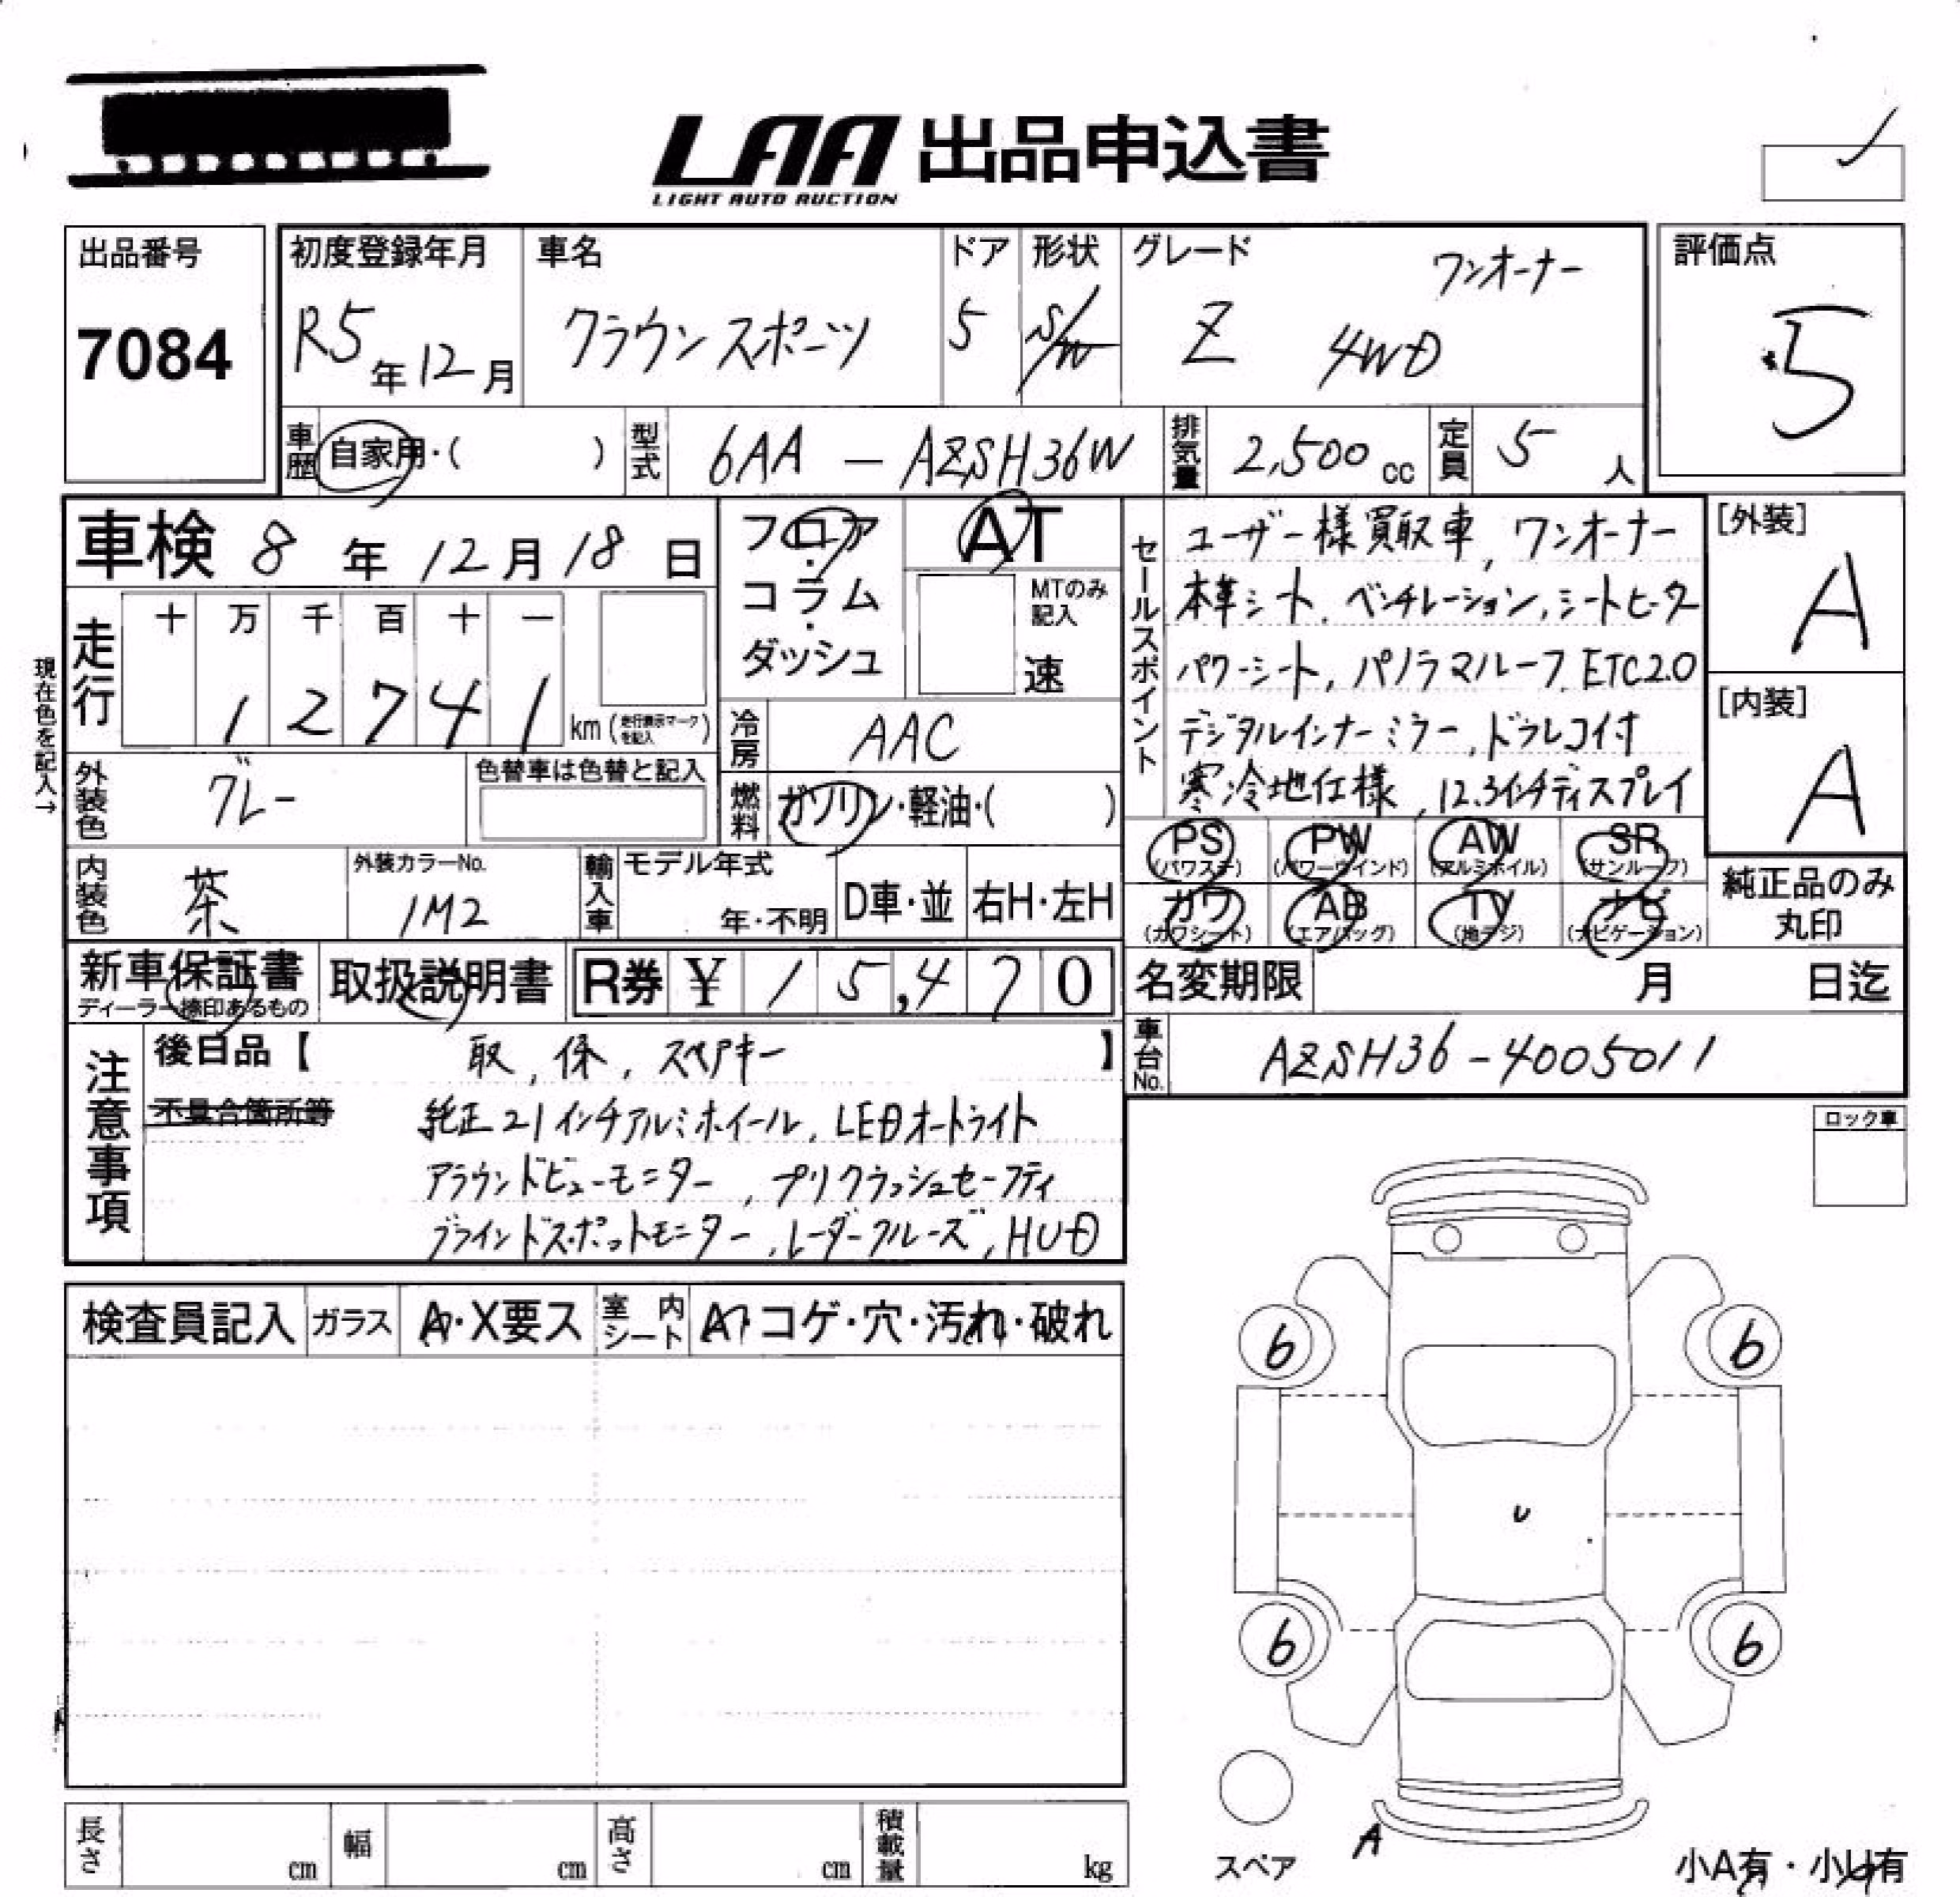 LAA 出品申込書
LIGHT AUTO AUCTION
出品番号
7084
初度登録年月
R5年12月
車名
クラウンスポーツ
ドア
5
形状
S/W
グレード
ワンオーナー
Z 4WD
評価点
5
車歴
自家用・( )
型式
6AA - AZSH36W
排気量
2,500cc
定員
5人
車検 8年12月18日
走行
十 万 千 百 十 一
1 2 7 4 1 km (走行表示マークを記入)
現在色を記入→
フロア・コラム・ダッシュ
AT
MTのみ記入
速
冷房
AAC
燃料
ガソリン・軽油・( )
外装色
グレー
色替車は色替と記入
内装色
茶
外装カラーNo.
1M2
輸入車
モデル年式
年・不明
D車・並
右H・左H
セールスポイント
ユーザー様買取車, ワンオーナー
本革シート, ベンチレーション, シートヒーター
パワーシート, パノラマルーフ, ETC2.0
デジタルインナーミラー, ドラレコ付
寒冷地仕様, 12.3インチディスプレイ
[外装]
A
[内装]
A
PS (パワステ)
PW (パワーウインド)
AW (アルミホイル)
SR (サンルーフ)
カワ (カワシート)
AB (エアバッグ)
TV (地デジ)
ナビ (ナビゲーション)
純正品のみ丸印
新車保証書
ディーラー捺印あるもの
取扱説明書
R券 ¥ 15,470
名変期限 月 日迄
車台No.
AZSH36-4005011
注意事項
後日品【 取, 保, スペアキー 】
不具合箇所等
純正21インチアルミホイール, LEDオートライト
アラウンドビューモニター, プリクラッシュセーフティ
ブラインドスポットモニター, レーダークルーズ, HUD
ロック車
検査員記入
ガラス
A・X要ス
室内シート
A・コゲ・穴・汚れ・破れ
6
6
U
6
6
A
スペア
小A有・小U有
長さ cm
幅 cm
高さ cm
積載量 kg